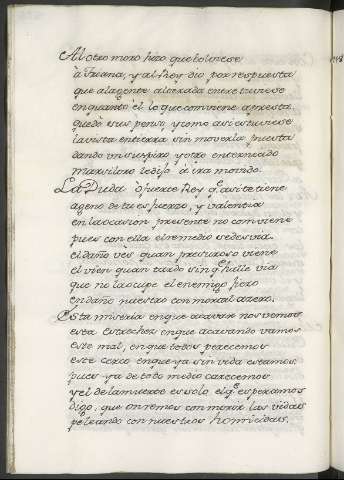 Al otro moro hizo que bolviese
à Triana, y al Rey dio por respuesta
que a la gente alterada entretuviese
en quanto él lo que conviene apresta
quedó suspenso, y como asi estuviese
la vista en tierra sin moverla puesta
dando un suspiro, y otro enternecido
Marsiloro le dijo à ira movido.
La Duda ò fuerte Rey q.e asi te tiene
ageno de tu esfuerzo, y valentia
en la ocasion presente no conviene
pues con ella el remedio se desvia.
el daño vès quan presuroso viene
el vien quan tardo sin q.e halle via
que no la ocupe el enemigo fiero
en daño nuestro con mortal azero.
Esta miseria en que atavar nos vemos
esta estrechez en que acavando vamos
este mal, en que todos perecemos
este cerco en que ya sin vida estamos,
pues ya de todo medio carecemos
y el de la muerte es solo el q.e esperamos
digo, que onremos con morir las vidas
peleando con nuestros homicidas.